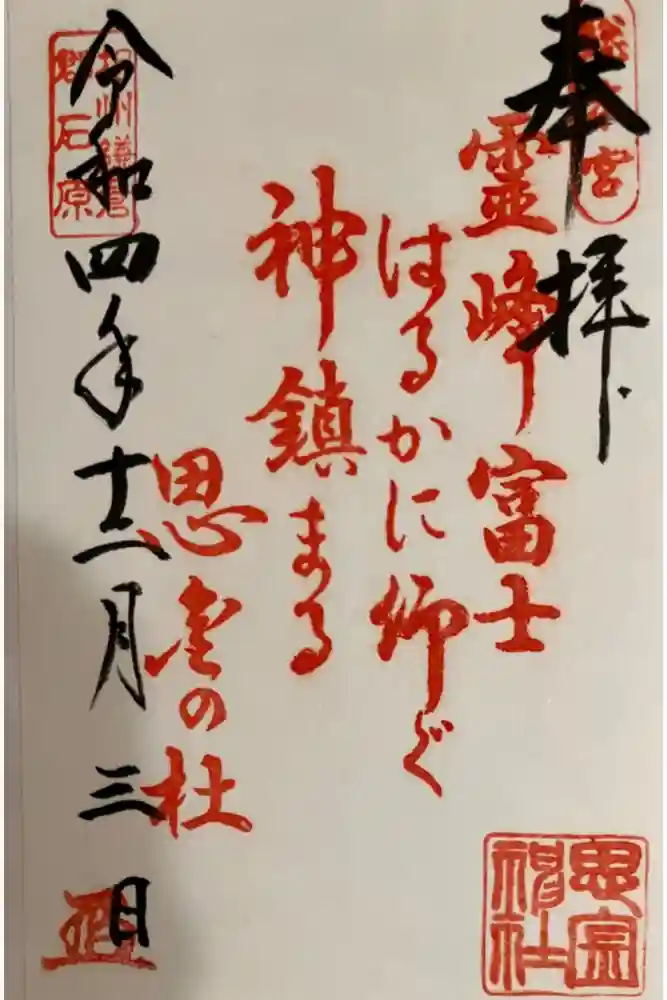 総本宮
奉拝
霊峰富士
はるかに仰ぐ
神鎮まる
思金の杜
相州鎌倉
郷石原
令和四年十二月三日
思金
神社